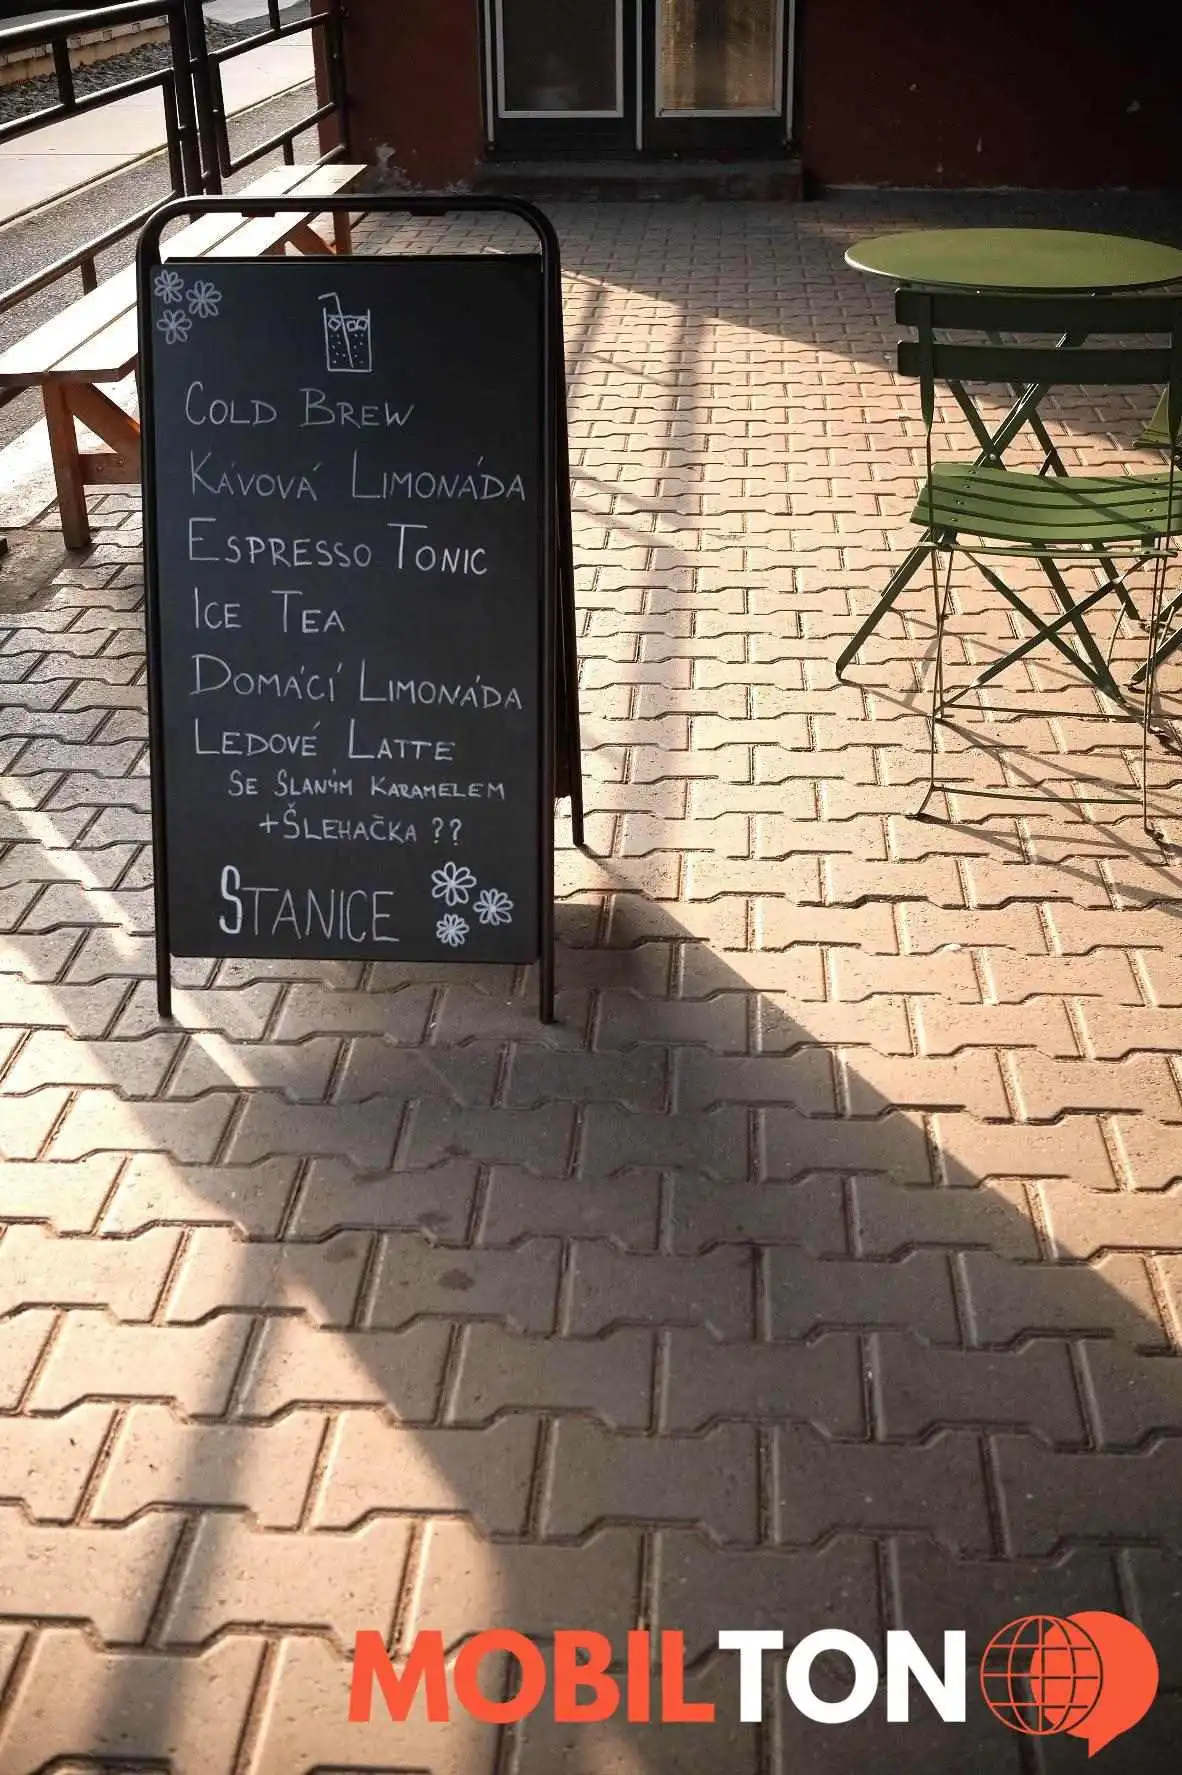 COLD BREW
KÁVOVÁ LIMONÁDA
ESPRESSO TONIC
ICE TEA
DOMÁCÍ LIMONÁDA
LEDOVÉ LATTE
SE SLANÝM KARAMELEM
+ŠLEHAČKA ??
STANICE
MOBILTON